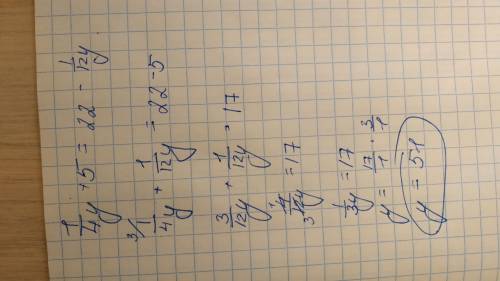 1/4y + 5 = 22 - 1/12y
3/ 1/4y + 1/12y = 22 - 5
3/12y + 1/12y = 17
4/12y = 17
1/3y = 17
y = 17/1 · 3/1
y = 51